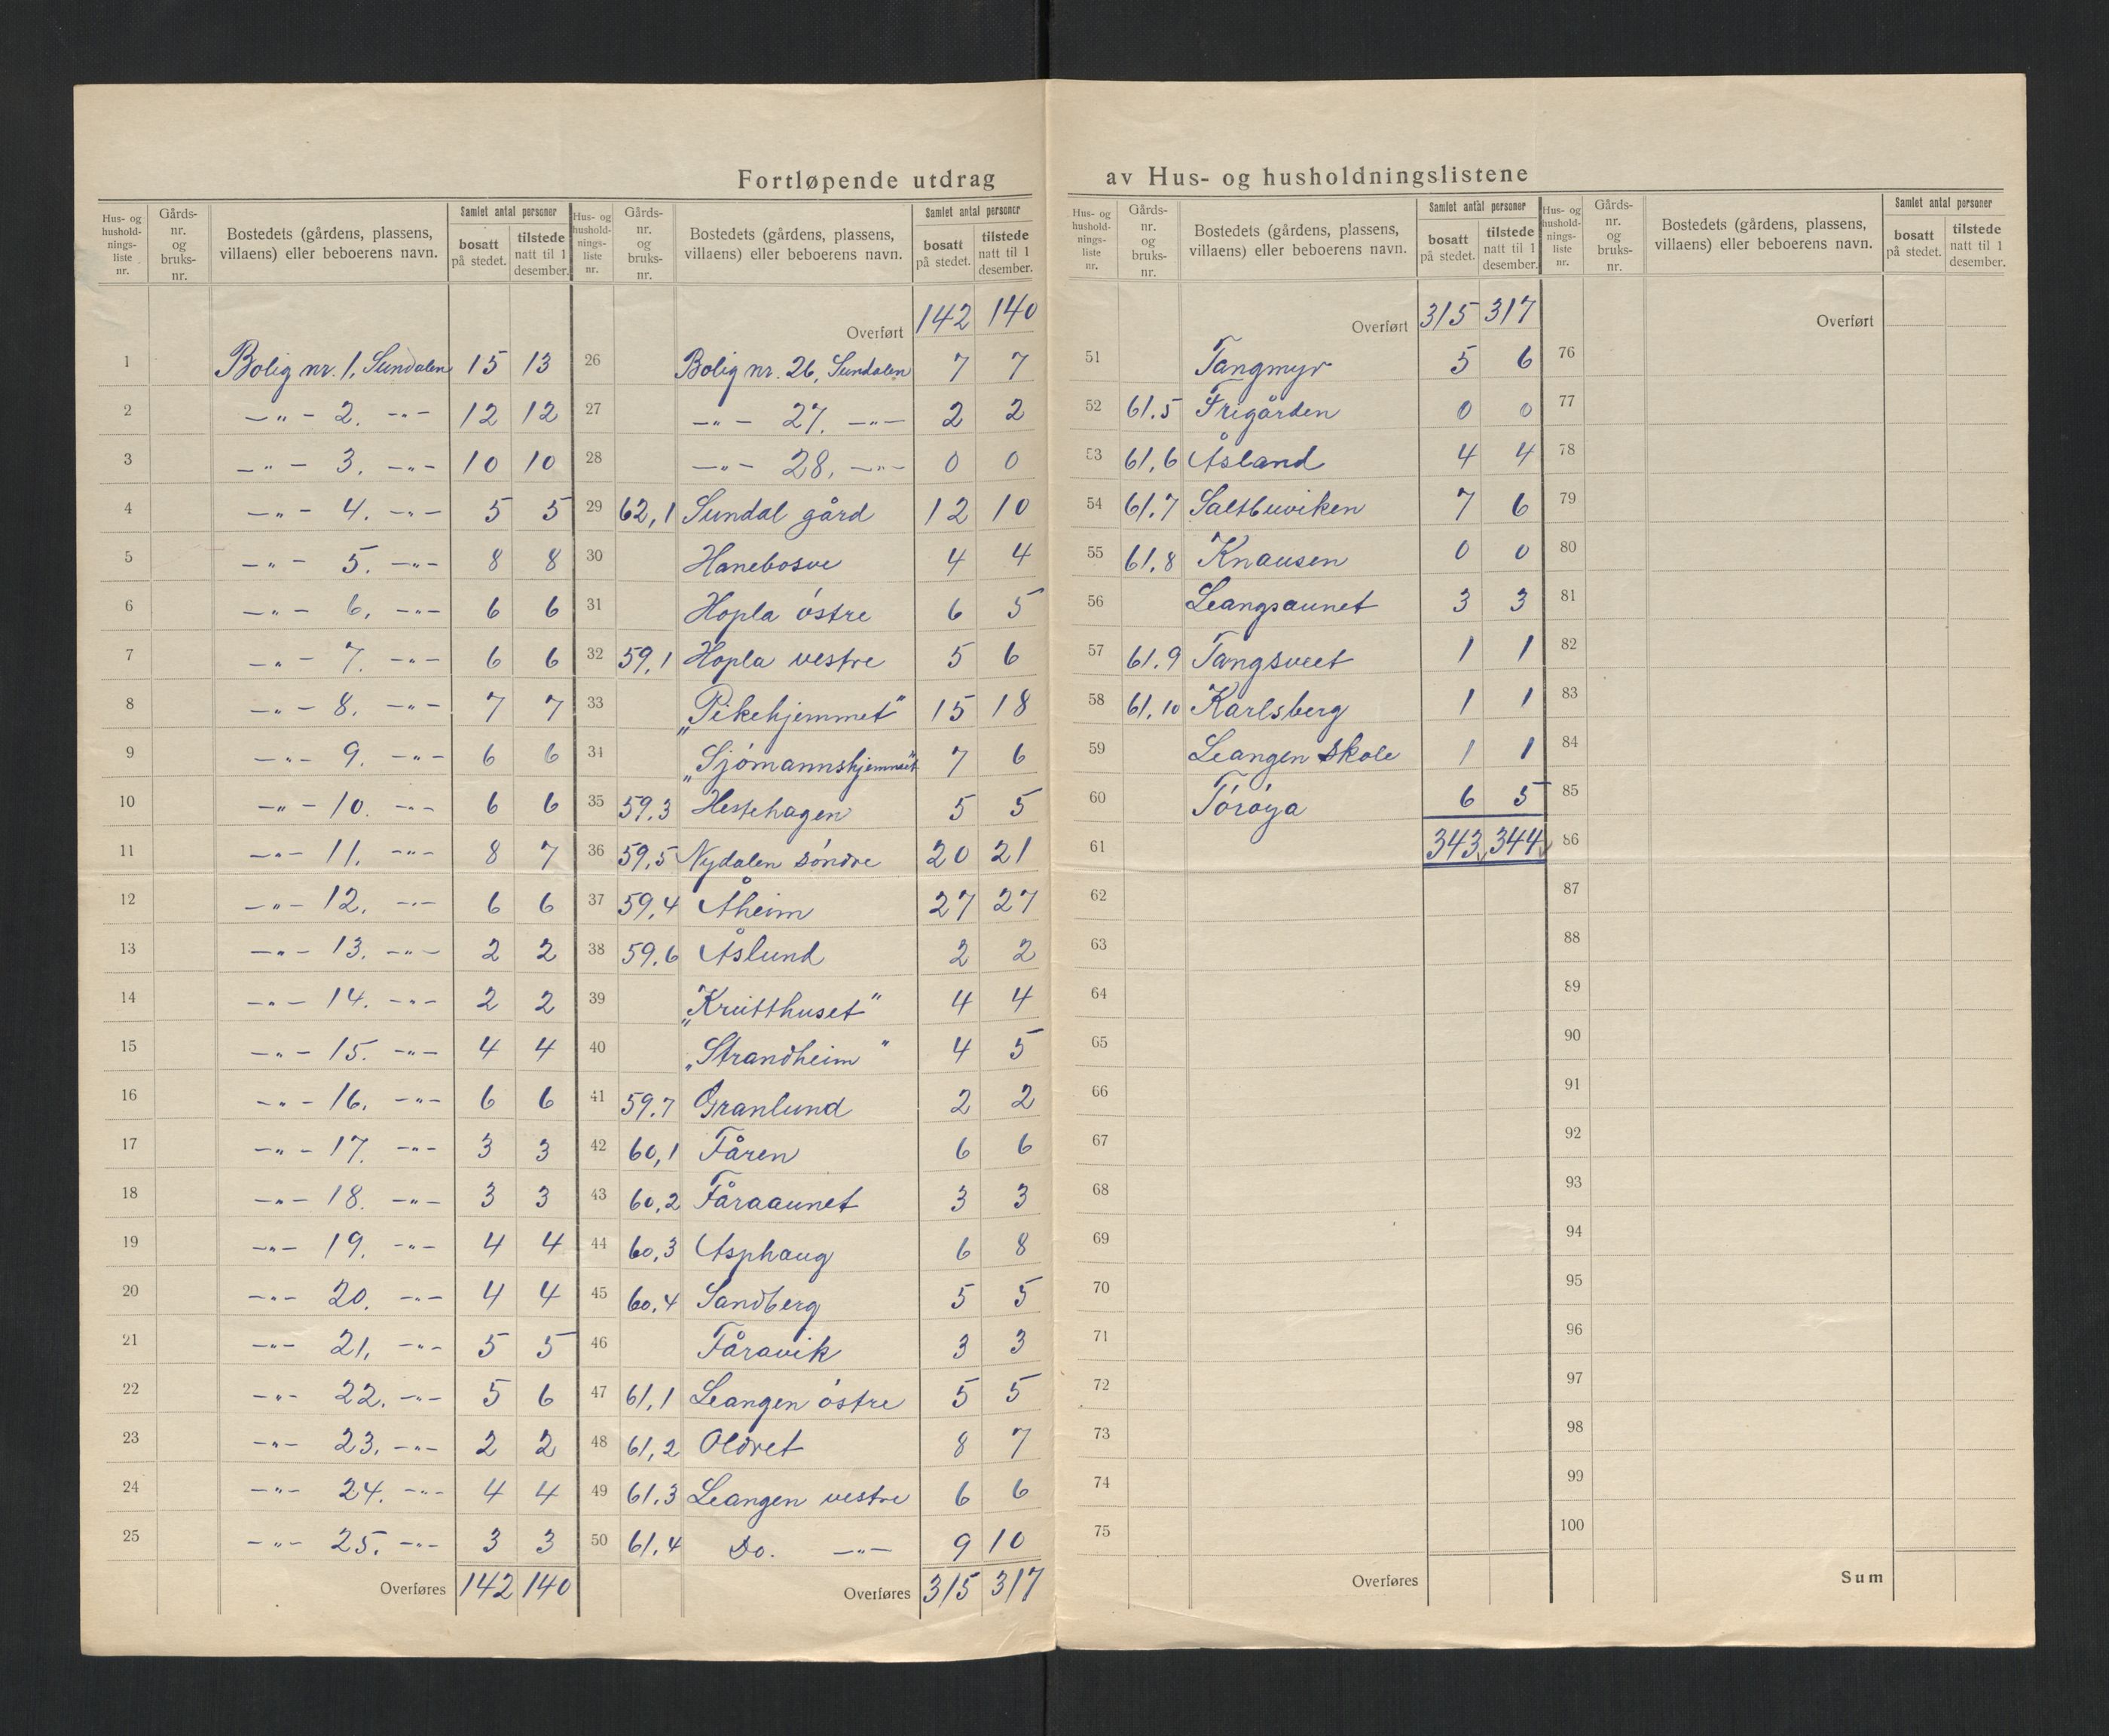 Fortløpende utdrag av Hus- og husholdningslistene
Hus- og hushold-nings-liste nr. | Gårds-nr. og bruks-nr. | Bostedets (gårdens, plassens, villaens) eller beboerens navn. | Samlet antal personer | bosatt på stedet. | tilstede natt til 1 desember.
1 Bolig nr. 1, Sundalen 15 13
2 —„— 2. —„— 12 12
3 —„— 3. —„— 10 10
4 —„— 4. —„— 5 5
5 —„— 5. —„— 8 8
6 —„— 6. —„— 6 6
7 —„— 7. —„— 6 6
8 —„— 8. —„— 7 7
9 —„— 9. —„— 6 6
10 —„— 10. —„— 6 6
11 —„— 11. —„— 8 7
12 —„— 12. —„— 6 6
13 —„— 13. —„— 2 2
14 —„— 14. —„— 2 2
15 —„— 15. —„— 4 4
16 —„— 16. —„— 6 6
17 —„— 17. —„— 3 3
18 —„— 18. —„— 3 3
19 —„— 19. —„— 4 4
20 —„— 20. —„— 4 4
21 —„— 21. —„— 5 5
22 —„— 22. —„— 5 6
23 —„— 23. —„— 2 2
24 —„— 24. —„— 4 4
25 —„— 25. —„— 3 3
Overføres 142 140
Hus- og hushold-nings-liste nr. | Gårds-nr. og bruks-nr. | Bostedets (gårdens, plassens, villaens) eller beboerens navn. | Samlet antal personer | bosatt på stedet. | tilstede natt til 1 desember.
Overført 142 140
26 Bolig nr. 26, Sundalen 7 7
27 —„— 27. —„— 2 2
28 —„— 28. —„— 0 0
29 62,1 Sundal gård 12 10
30 Hanebosve 4 4
31 Hopla østre 6 5
32 59,1 Hopla vestre 5 6
33 „Pikehjemmet" 15 18
34 „Sjømannshjemmet" 7 6
35 59.3 Hestehagen 5 5
36 59,5 Nydalen søndre 20 21
37 59,4 Åheim 27 27
38 59.6 Åslund 2 2
39 „Krutthuset" 4 4
40 „Strandheim" 4 5
41 59.7 Granlund 2 2
42 60,1 Fåren 6 6
43 60,2 Fåraaunet 3 3
44 60,3 Asphaug 6 8
45 60,4 Sandberg 5 5
46 Fåravik 3 3
47 61,1 Leangen østre 5 5
48 61,2 Oldret 8 7
49 61.3 Leangen vestre 6 6
50 61.4 Do. —„— 9 10
Overføres 315 317
Hus- og hushold-nings-liste nr. | Gårds-nr. og bruks-nr. | Bostedets (gårdens, plassens, villaens) eller beboerens navn. | Samlet antal personer | bosatt på stedet. | tilstede natt til 1 desember.
Overført 315 317
51 Tangmyr 5 6
52 61.5 Frigården 0 0
53 61,6 Åsland 4 4
54 61.7 Saltbuviken 7 6
55 61.8 Knausen 0 0
56 Leangsaunet 3 3
57 61.9 Tangsveet 1 1
58 61.10 Karlsberg 1 1
59 Leangen skole 1 1
60 Tørøya 6 5
61 343 344
62
63
64
65
66
67
68
69
70
71
72
73
74
75
Overføres
Hus- og hushold-nings-liste nr. | Gårds-nr. og bruks-nr. | Bostedets (gårdens, plassens, villaens) eller beboerens navn. | Samlet antal personer | bosatt på stedet. | tilstede natt til 1 desember.
Overført
76
77
78
79
80
81
82
83
84
85
86
87
88
89
90
91
92
93
94
95
96
97
98
99
100
Sum